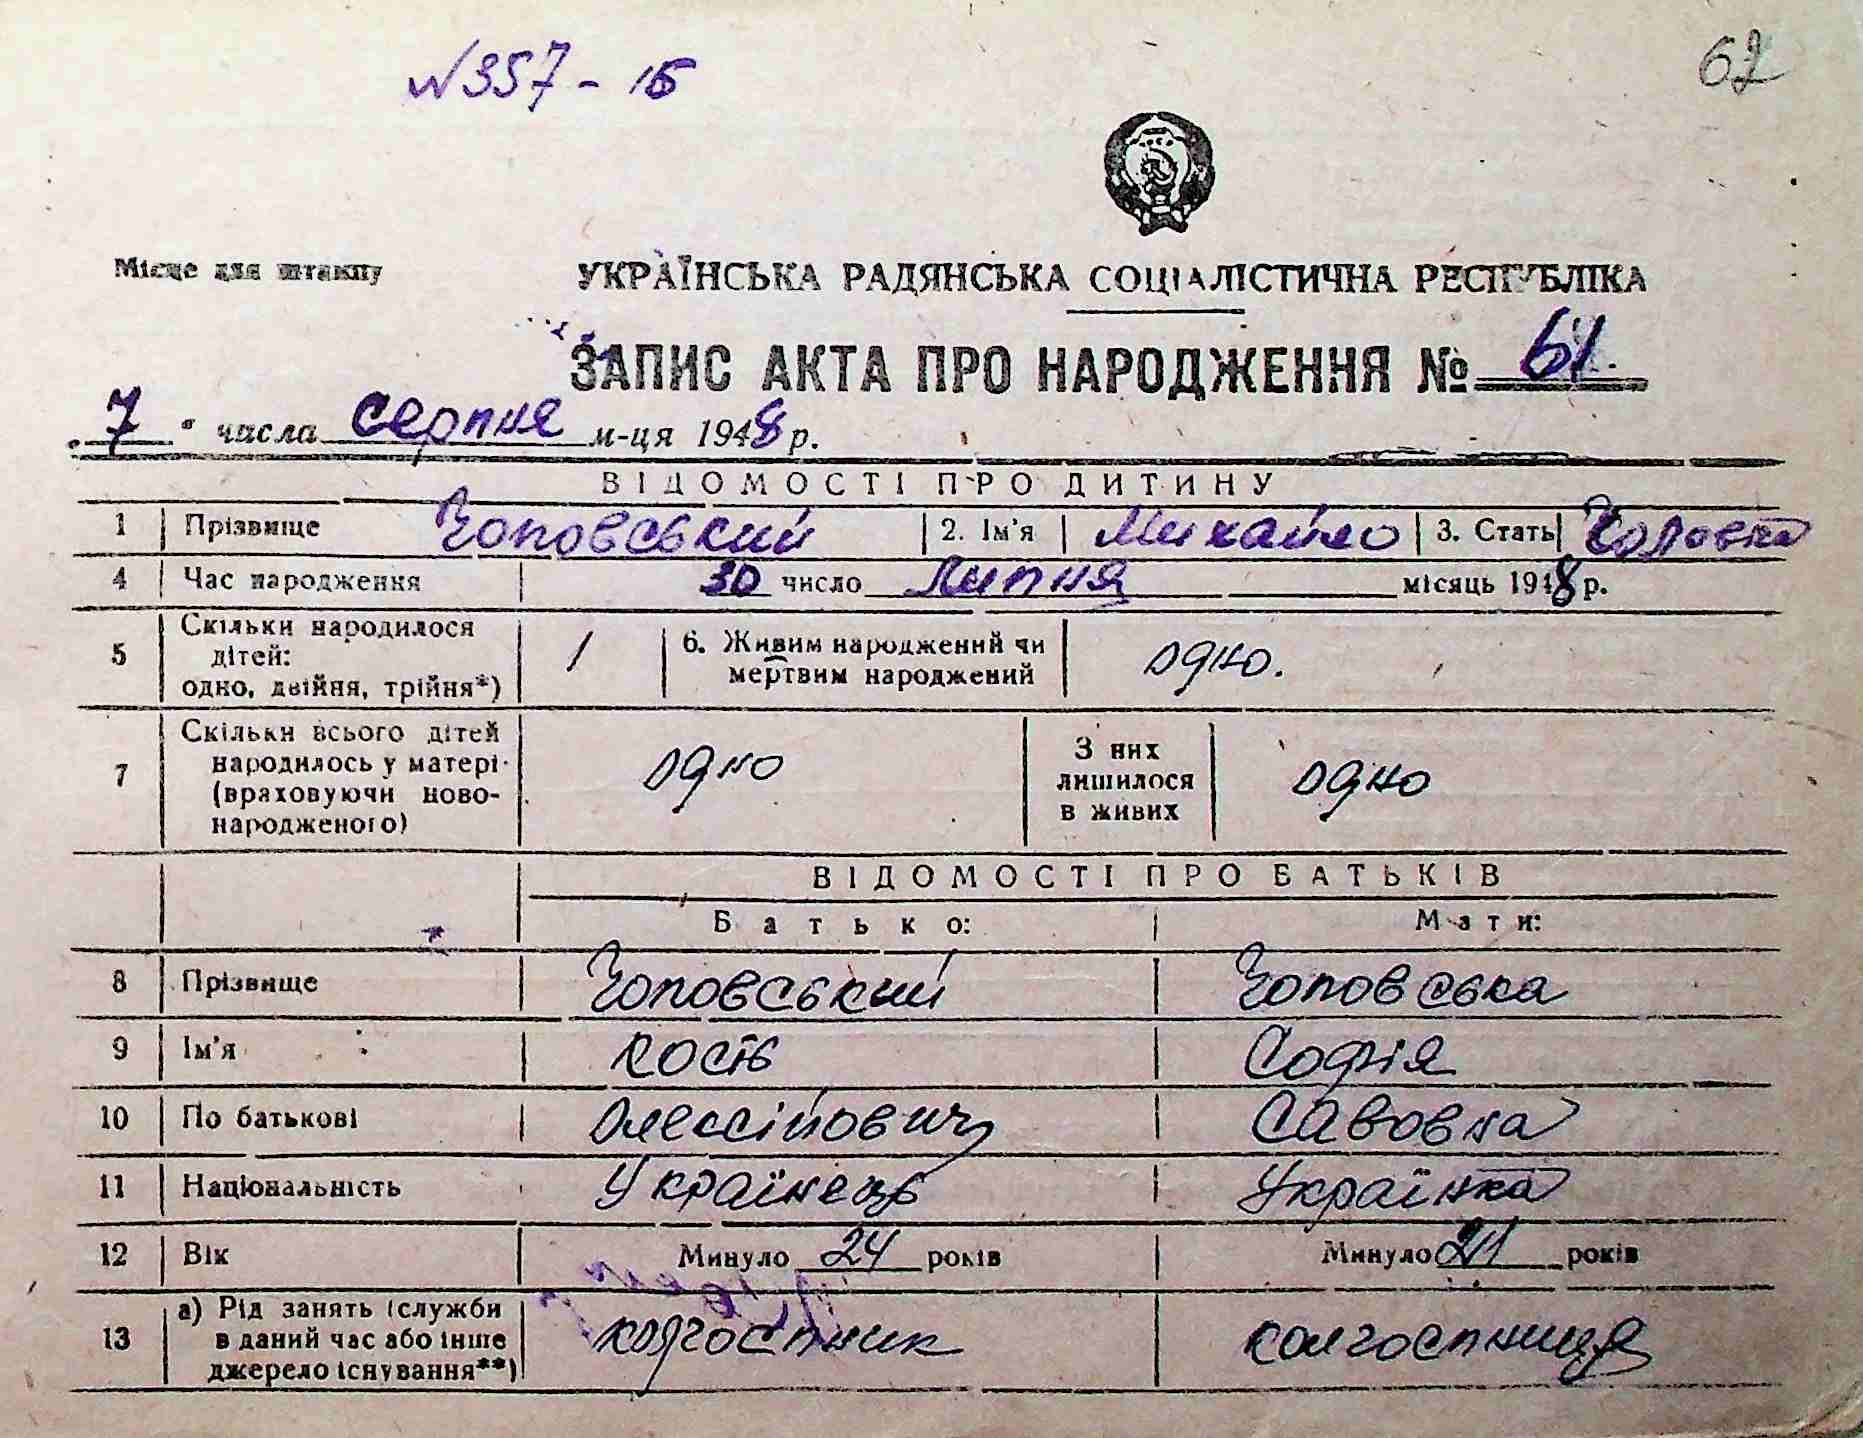 №357 - 1б
62
Місце для штампу
УКРАЇНСЬКА РАДЯНСЬКА СОЦІАЛІСТИЧНА РЕСПУБЛІКА
ЗАПИС АКТА ПРО НАРОДЖЕННЯ № 61.
„7" числа серпня м-ця 1948 р.
ВІДОМОСТІ ПРО ДИТИНУ
1 Прізвище Чоповський 2. Ім'я Михайло 3. Стать Чоловіча
4 Час народження 30 число Липня місяць 1948 р.
5 Скільки народилося дітей: одно, двійня, трійня*) 1 6. Живим народжений чи мертвим народжений одно.
7 Скільки всього дітей народилось у матері (враховуючи новонародженого) одно З них лишилося в живих одно
ВІДОМОСТІ ПРО БАТЬКІВ
Батько: Мати:
8 Прізвище Чоповський Чоповська
9 Ім'я Кость Софія
10 По батькові Олексійович Савовна
11 Національність Українець Українка
12 Вік Минуло 24 років Минуло 21 років
13 а) Рід занять (служби в даний час або інше джерело існування**) колгоспник колгоспниця